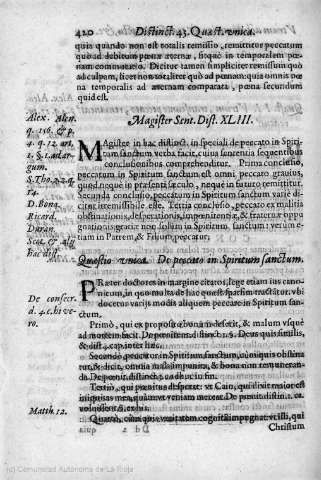 420 Distinct. 43. Quæst. vnica.
quia quando non est totalis remissio, remittitur peccatum
quo ad debitum pœnæ æternæ, fitque in temporalem pœ-
nam commutatio. Dicitur tamen simpliciter remissum quò
ad culpam, licet non totaliter quò ad pœnam: quia omnis pœ
na temporalis ad æternam comparata, pœna secundum
quid est.
Magister Sent. Dist. XLIII.
Alex. Alen.
q. 156. & p.
4. q. 12. art.
1. §. 1. ad ar-
gum.
S. Tho. 2. 2. q.
14.
D. Bona.
Ricard.
Duran.
Scot. & alij
hac dist.
Magister in hac distinct. in speciali de peccato in Spiri-
tum sanctum verba facit, cuius sententia sequentibus
conclusionibus comprehenditur. Prima conclusio,
peccatum in Spiritum Sanctum est omni peccato grauius,
quod neque in præsenti sæculo, neque in futuro remittitur.
Secunda conclusio, peccatum in Spiritum sanctum varie di-
citur irremissibile esse. Tertia conclusio, peccato ex malitia
obstinationis, desperationis, impœnitentiæ, & fraternæ oppu
gnationis gratiæ non solum in Spiritum sanctum: verum e-
tiam in Patrem, & Filium peccatur.
Quæstio vnica. De peccato in Spiritum sanctum.
Præter doctores in margine citatos, lege etiam ius cano-
nicum, in quo multa de hac quæst. sparsim tractātur. vbi
docetur varijs modis aliquem peccare in Spiritum san-
ctum.
De consecr.
d. 4. c. hi ve-
ro.
Primò, qui ex proposito bona deserit, & malum vsque
ad mortem facit. De pœnitent. distinct. 1. §. Deus quis similis,
& dist. 4. cap. inter hæc.
Secundò, peccat in Spiritum sanctum, cuius quis obstina
tur, & dicit, omnia mala impunita, & bona non remuneran-
da. De pœnit. distinct. 2. ca. dn̄s. in fin.
Tertiò, qui pœnitus desperat: vt Cain, qui dixit maior est
iniquitas mea, quàm vt veniam merear. De pœnit. distin. 1. ca.
voluissent &, ex his.
Matth. 12.
Quartò, cùm quis veritatem cognitā impugnat: vt isti, qui
Dd 2 Christum
(c) Comunidad Autónoma de La Rioja